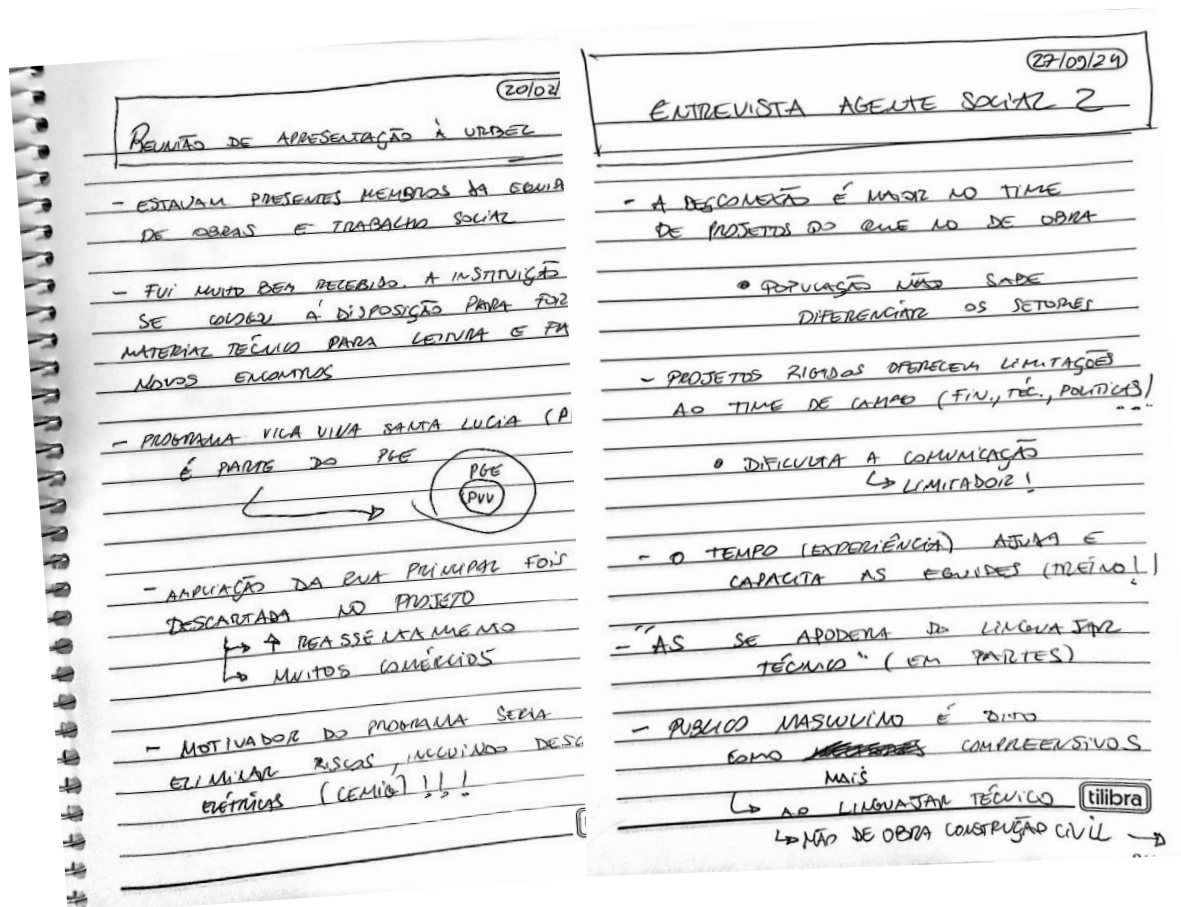 (20/02/
REUNIÃO DE APRESENTAÇÃO À URBEL
- ESTAVAM PRESENTES MEMBROS DA EQUIP
DE OBRAS E TRABALHO SOCIAL
- FUI MUITO BEM RECEBIDO. A INSTITUIÇÃO
SE COLOCOU À DISPOSIÇÃO PARA FOR
MATERIAL TÉCNICO PARA LEITURA E FA
NOVOS ENCONTROS
- PROGRAMA VILA VIVA SANTA LUCIA (P
É PARTE DO PGE
PGE
PVV
- AMPLIAÇÃO DA RUA PRINCIPAL FOIS
DESCARTADA NO PROJETO
↳ ↑ REASSENTAMENTO
↳ MUITOS COMÉRCIOS
- MOTIVADOR DO PROGRAMA SERIA
ELIMINAR RISCOS, INCLUINDO DESC
ELÉTRICAS (CEMIG) !!!
27/09/24
ENTREVISTA AGENTE SOCIAL 2
- A DESCONEXÃO É MAIOR NO TIME
DE PROJETOS DO QUE NO DE OBRA
• POPULAÇÃO NÃO SABE
DIFERENCIAR OS SETORES
- PROJETOS RIGIDOS OFERECEM LIMITAÇÕES
AO TIME DE CAMPO (FIN., TÉC., POLITICAS)
...
• DIFICULTA A COMUNICAÇÃO
↳ LIMITADOR!
- O TEMPO (EXPERIÊNCIA) AJUDA E
CAPACITA AS EQUIPES (TREINO!)
- "AS SE APODERA DO LINGUAJAR
TÉCNICO" (EM PARTES)
- PUBLICO MASCULINO É DITO
COMO COMPREENSIVOS
MAIS
↳ AO LINGUAJAR TÉCNICO
tilibra
↳ MÃO DE OBRA CONSTRUÇÃO CIVIL →